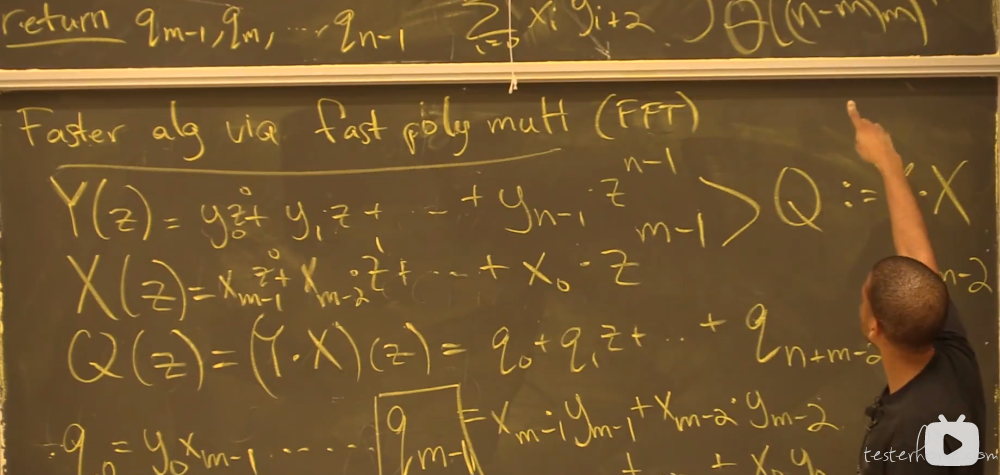 return q_{m-1}, q_m, ..., q_{n-1} ∑_{i=0} x_i y_{i+2} ) Θ((n-m)m)
Faster alg via fast poly mult (FFT)
Y(z) = y_0 z^0 + y_1 z + ... + y_{n-1} · z^{n-1} > Q := · X
X(z) = x_{m-1} z^0 + x_{m-2} · z^1 + ... + x_0 · z^{m-1}
Q(z) = (Y·X)(z) = q_0 + q_1 z + ... + q_{n+m-2}
q_0 = y_0 x_{m-1} ...... q_{m-1} = x_{m-1} y_{m-1} + x_{m-2} · y_{m-2}